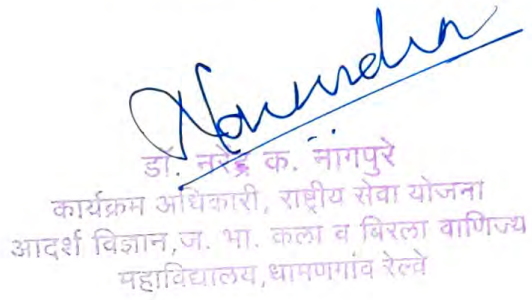 Narendra
डॉ. नरेंद्र क. नागपुरे
कार्यक्रम अधिकारी, राष्ट्रीय सेवा योजना
आदर्श विज्ञान,ज. भा. कला व बिरला वाणिज्य
महाविद्यालय,धामणगांव रेल्वे